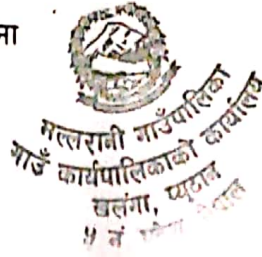 मा
मल्लरानी गाउँपालिका
गाउँ कार्यपालिकाको कार्यालय
खलंगा, प्यूठान
५ नं